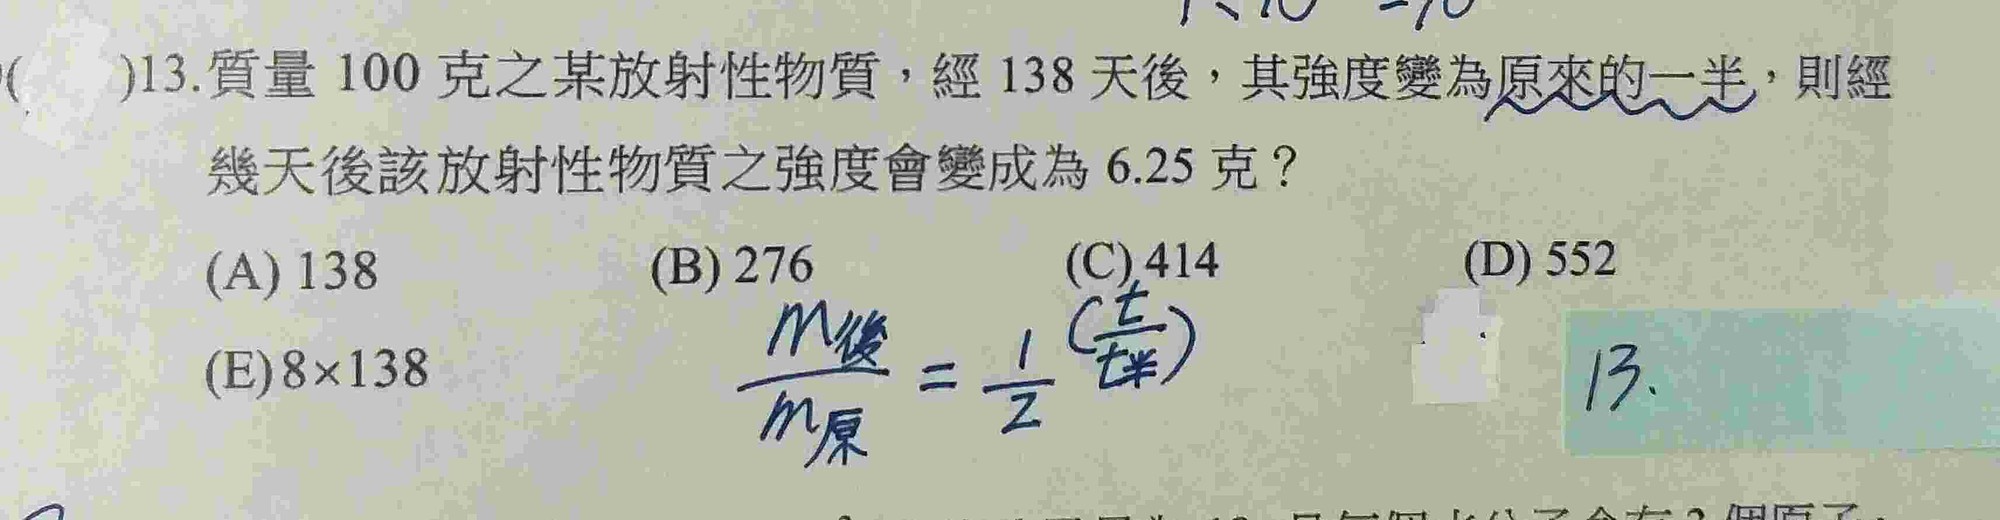 ( )13.質量 100 克之某放射性物質，經 138 天後，其強度變為原來的一半，則經
幾天後該放射性物質之強度會變成為 6.25 克？
(A) 138 (B) 276 (C) 414 (D) 552
(E) 8×138
m後/m原 = 1/2 (t/t半)
13.